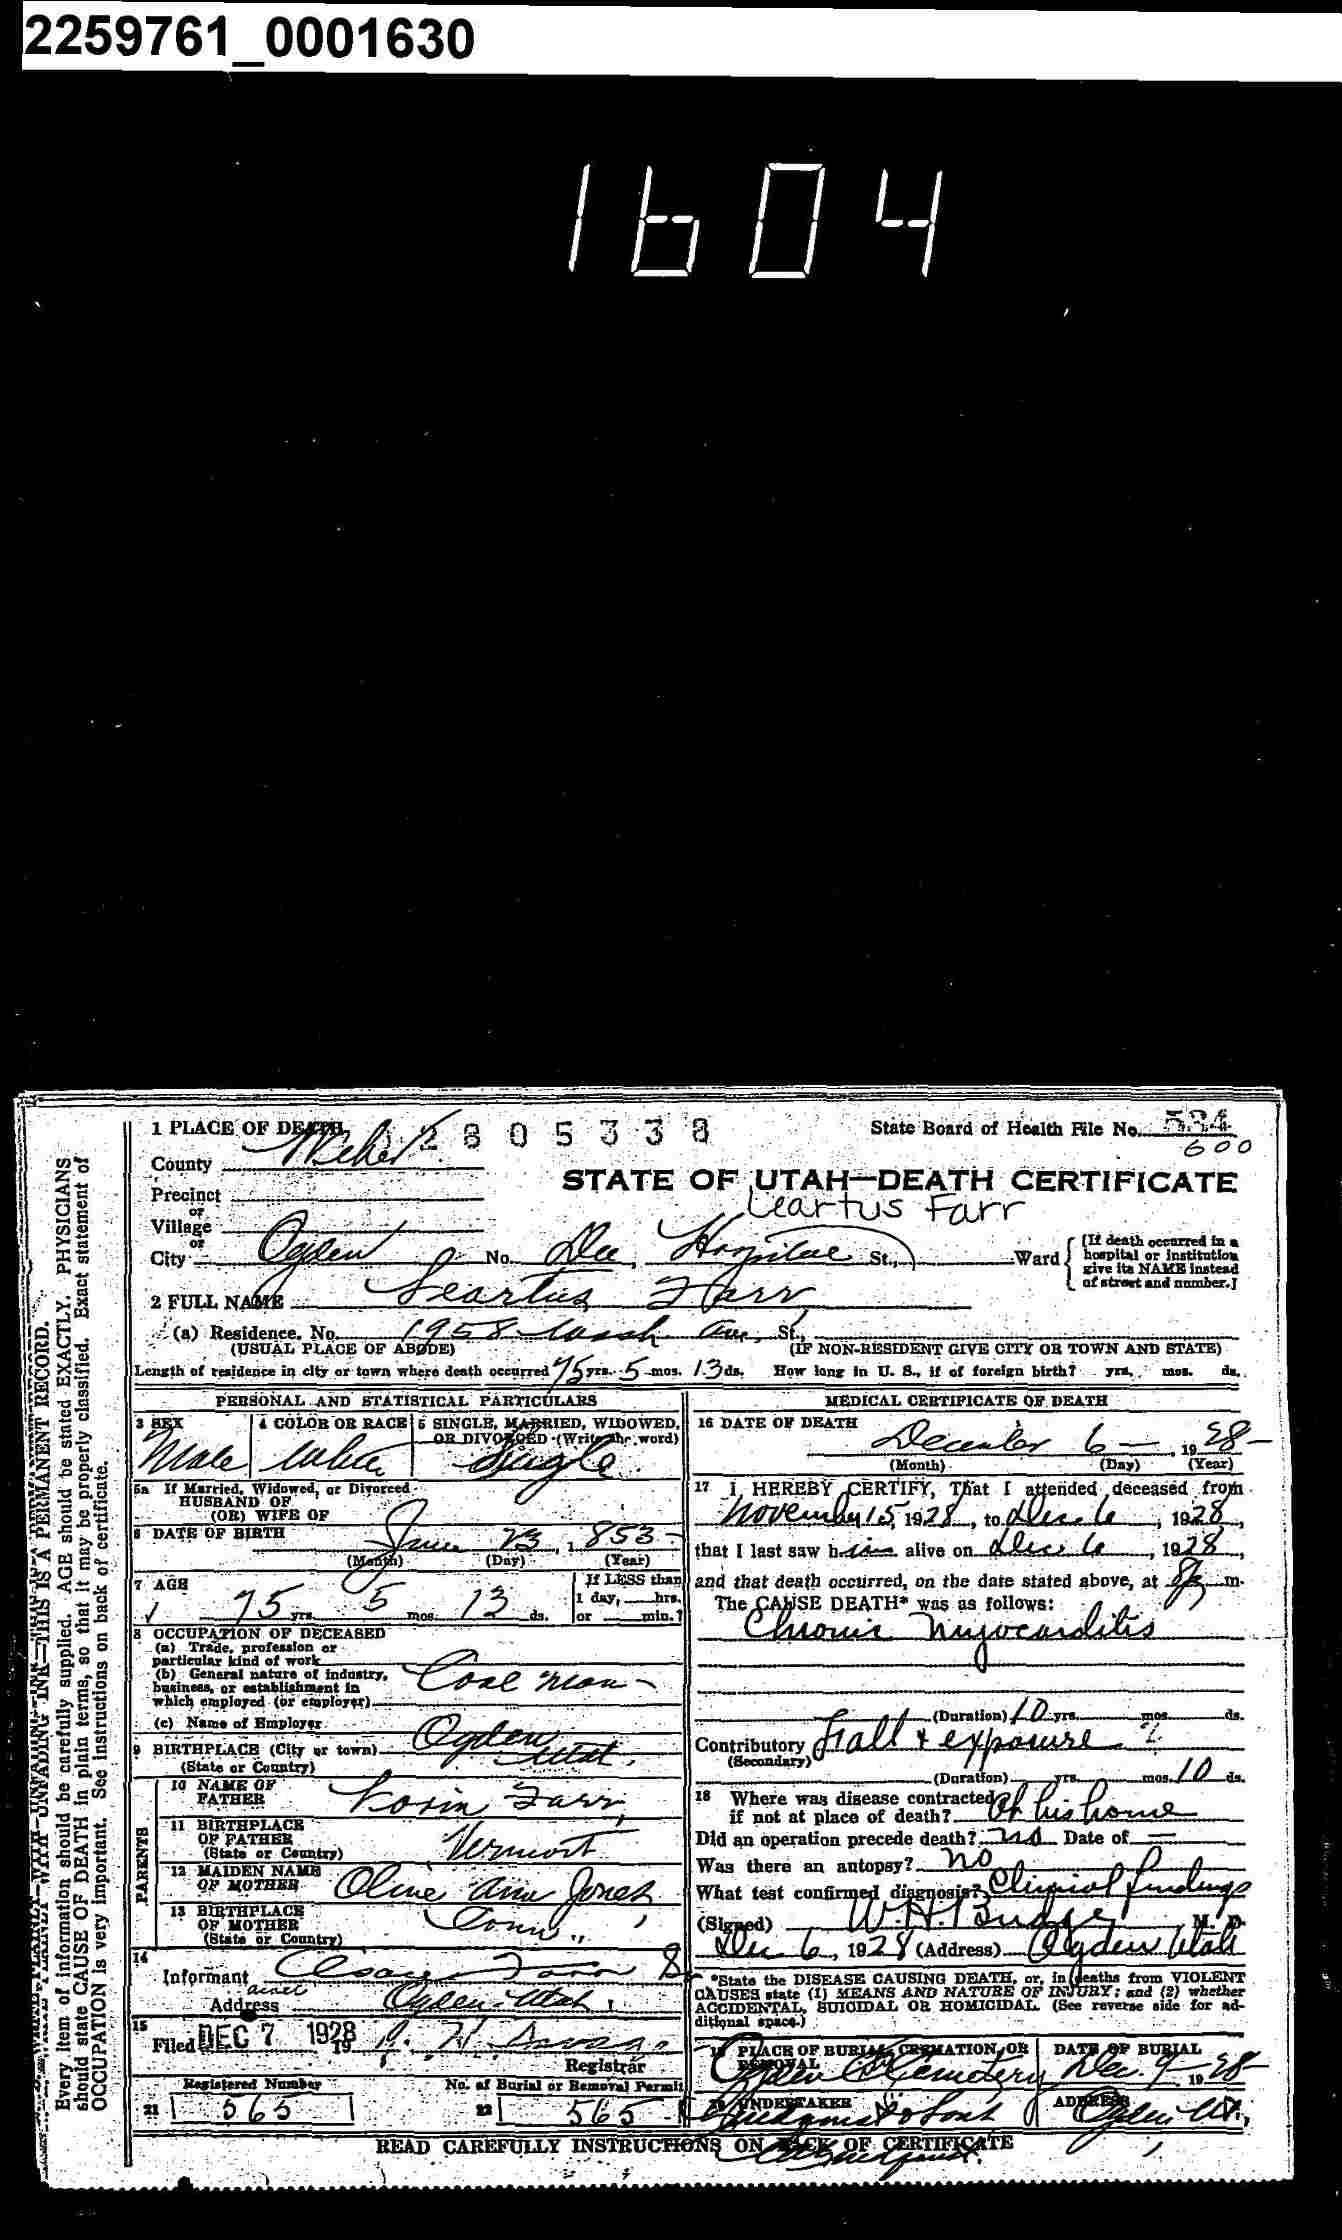 2259761_0001630
1604
1 PLACE OF DEATH
2805338
State Board of Health File No. 534
600
County Weber
STATE OF UTAH—DEATH CERTIFICATE
Precinct
or
Leartus Farr
Village
or
City Ogden No. Dee Hospital St., Ward
[If death occurred in a hospital or institution give its NAME instead of street and number.]
2 FULL NAME Leartus Farr
(a) Residence. No. 1958 Wash Ave, St.,
(USUAL PLACE OF ABODE) (IF NON-RESIDENT GIVE CITY OR TOWN AND STATE)
Length of residence in city or town where death occurred 75 yrs. 5 mos. 13 ds. How long in U. S., if of foreign birth? yrs. mos. ds.
PERSONAL AND STATISTICAL PARTICULARS
3 SEX
Male
4 COLOR OR RACE
white
5 SINGLE, MARRIED, WIDOWED, OR DIVORCED (Write the word)
Single
5a If Married, Widowed, or Divorced
HUSBAND OF
(OR) WIFE OF
6 DATE OF BIRTH
June 23, 1853
(Month) (Day) (Year)
7 AGE
75 yrs. 5 mos. 13 ds.
If LESS than 1 day, hrs. or min.?
8 OCCUPATION OF DECEASED
(a) Trade, profession or
particular kind of work
(b) General nature of industry,
business, or establishment in
which employed (or employer)
Coal man
(c) Name of Employer
9 BIRTHPLACE (City or town) Ogden
(State or Country) Utah.
PARENTS
10 NAME OF FATHER Lorin Farr
11 BIRTHPLACE OF FATHER (State or Country) Vermont
12 MAIDEN NAME OF MOTHER Olive Ann Jones
13 BIRTHPLACE OF MOTHER (State or Country) Conn
14
Informant Farr
Address Ogden Utah
15
Filed DEC 7 1928
19
Registrar
Registered Number
21 565
No. of Burial or Removal Permit
22 565
MEDICAL CERTIFICATE OF DEATH
16 DATE OF DEATH
December 6 1928
(Month) (Day) (Year)
17 I HEREBY CERTIFY, That I attended deceased from
November 15, 1928, to Dec 6, 1928,
that I last saw him alive on Dec 6, 1928,
and that death occurred, on the date stated above, at m.
The CAUSE DEATH* was as follows:
Chronic Myocarditis
(Duration) 10 yrs. mos. ds.
Contributory Fall & exposure
(Secondary)
(Duration) yrs. mos. 10 ds.
18 Where was disease contracted
if not at place of death? At his home
Did an operation precede death? no Date of
Was there an autopsy? no
What test confirmed diagnosis? Clinical findings
(Signed) W. H. Budge, M. D.
Dec 6, 1928 (Address) Ogden Utah
*State the DISEASE CAUSING DEATH, or, in deaths from VIOLENT
CAUSES state (1) MEANS AND NATURE OF INJURY; and (2) whether
ACCIDENTAL, SUICIDAL OR HOMICIDAL. (See reverse side for ad-
ditional space.)
19 PLACE OF BURIAL, CREMATION, OR REMOVAL
Ogden Cemetery
DATE OF BURIAL
Dec. 9 1928
20 UNDERTAKER
Lindquist & Sons
ADDRESS
Ogden Ut.,
READ CAREFULLY INSTRUCTIONS ON BACK OF CERTIFICATE
THIS IS A PERMANENT RECORD.
Every item of information should be carefully supplied. AGE should be stated EXACTLY. PHYSICIANS
should state CAUSE OF DEATH in plain terms, so that it may be properly classified. Exact statement of
OCCUPATION is very important. See instructions on back of certificate.